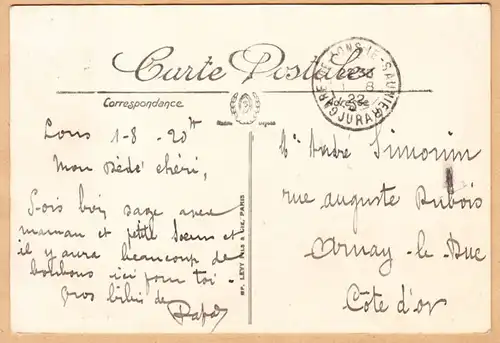 Carte Postale
Correspondance
Adresse
GARE DE LONS-LE-SAUNIER
1 - 8
22
JURA
Lons 1-8-20
Mon Bébé chéri,
Sois bien sage avec
maman et petite Soeur et
il y aura beaucoup de
bonbons ici pour toi -
Gros bibis de
Papa
LEVY FILS & Cie, PARIS
André Simonin
rue auguste Dubois
Arnay-le-Duc
Côte d'or